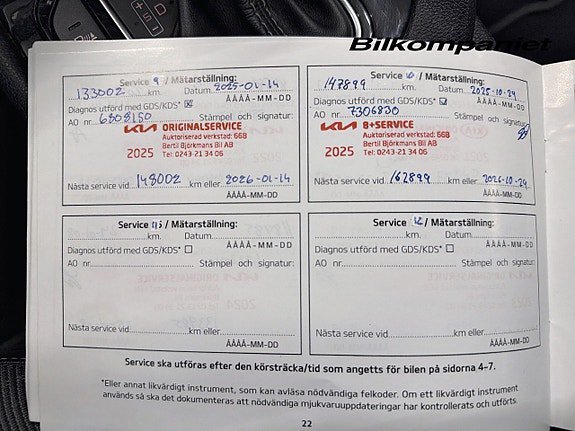 Bilkompaniet
Service 9 / Mätarställning:
133002 km. Datum 2025-01-14
ÅÅÅÅ-MM-DD
Diagnos utförd med GDS/KDS* ☑
AO nr 6808150 Stämpel och signatur:
KIA ORIGINALSERVICE
Auktoriserad verkstad: 66B
Bertil Björkmans Bil AB
2025 Tel: 0243-21 34 06
Nästa service vid 148002 km eller 2026-01-14
ÅÅÅÅ-MM-DD
Service 10 / Mätarställning:
147899 km. Datum 2025-10-24
ÅÅÅÅ-MM-DD
Diagnos utförd med GDS/KDS* ☑
AO nr 7306830 Stämpel och signatur:
KIA 8+SERVICE
Auktoriserad verkstad: 66B
Bertil Björkmans Bil AB
2025 Tel: 0243-21 34 06
Nästa service vid 162899 km eller 2026-10-24
ÅÅÅÅ-MM-DD
Service 11 / Mätarställning:
km. Datum
ÅÅÅÅ-MM-DD
Diagnos utförd med GDS/KDS* ☐
AO nr Stämpel och signatur:
Nästa service vid km eller
ÅÅÅÅ-MM-DD
Service 12 / Mätarställning:
km. Datum
ÅÅÅÅ-MM-DD
Diagnos utförd med GDS/KDS* ☐
AO nr Stämpel och signatur:
Nästa service vid km eller
ÅÅÅÅ-MM-DD
Service ska utföras efter den körsträcka/tid som angetts för bilen på sidorna 4-7.
*Eller annat likvärdigt instrument, som kan avläsa nödvändiga felkoder. Om ett likvärdigt instrument
används så ska det dokumenteras att nödvändiga mjukvaruuppdateringar har kontrollerats och utförts.
22